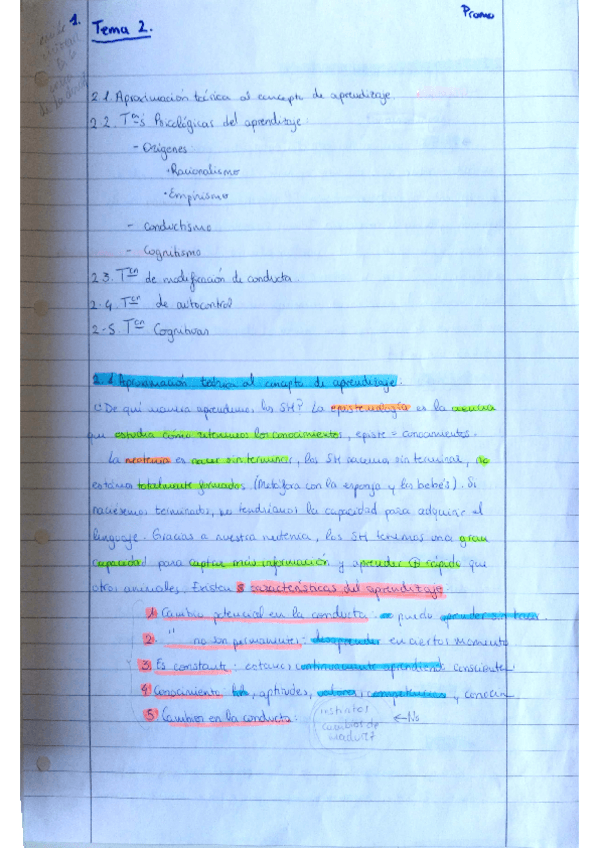 1.
Tema 2.
Promo
2.1. Aproximación teórica al concepto de aprendizaje.
2.2. Tªs Psicológicas del aprendizaje:
- Orígenes:
· Racionalismo
· Empirismo
- Conductismo
- Cognitismo
2.3. Tcn de modificación de conducta.
2.4. Tcn de autocontrol
2.5. Tcn Cognitivas
2.1. Aproximación teórica al concepto de aprendizaje:
¿De qué manera aprendemos los SH? La epistemología es la ciencia
que estudia cómo retenemos los conocimientos, episte = conocimientos.
La neotenia es nacer sin terminar, los SH nacemos sin terminar, no
estamos totalmente formados (Metáfora con la esponja y los bebés). Si
naciésemos terminados, no tendríamos la capacidad para adquirir el
lenguaje. Gracias a nuestra neotenia, los SH tenemos una gran
capacidad para captar más información y aprender + rápido que
otros animales. Existen 8 características del aprendizaje:
1 Cambio potencial en la conducta: puedo aprender sin
2. " no son permanentes: desaprender en ciertos momento
3 Es constante: estamos continuamente aprendiendo consciente
4 Conocimiento: aptitudes, valores, competencias, y
5 Cambios en la conducta: instintos
cambios de
madurez